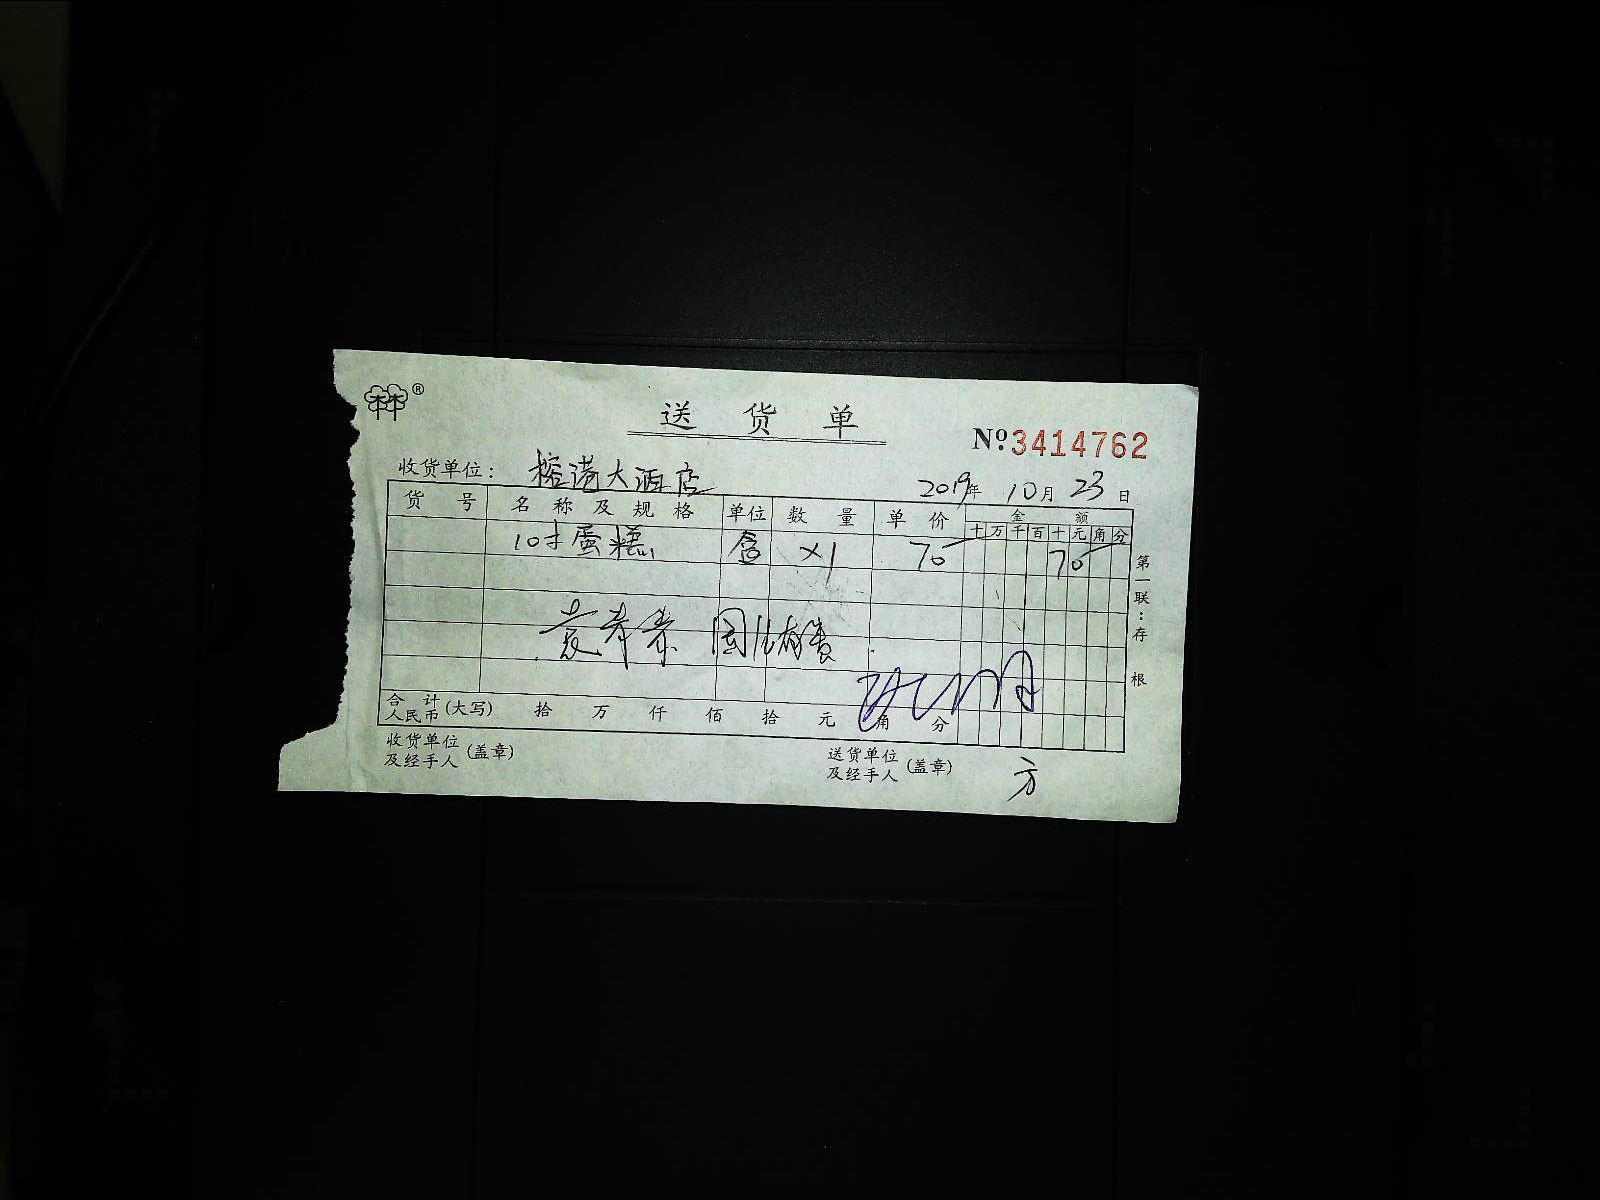 ®
送 货 单
№3414762
收货单位： 榕港大酒店
2019年 10月 23日
货 号 名 称 及 规 格 单位 数 量 单 价 金 额
十 万 千 百 十 元 角 分
10寸蛋糕 盒 ×1 70 70
第一联：存根
合 计
人民币 (大写) 拾 万 仟 佰 拾 元 角 分
收货单位
及经手人 (盖章)
送货单位
及经手人 (盖章) 方